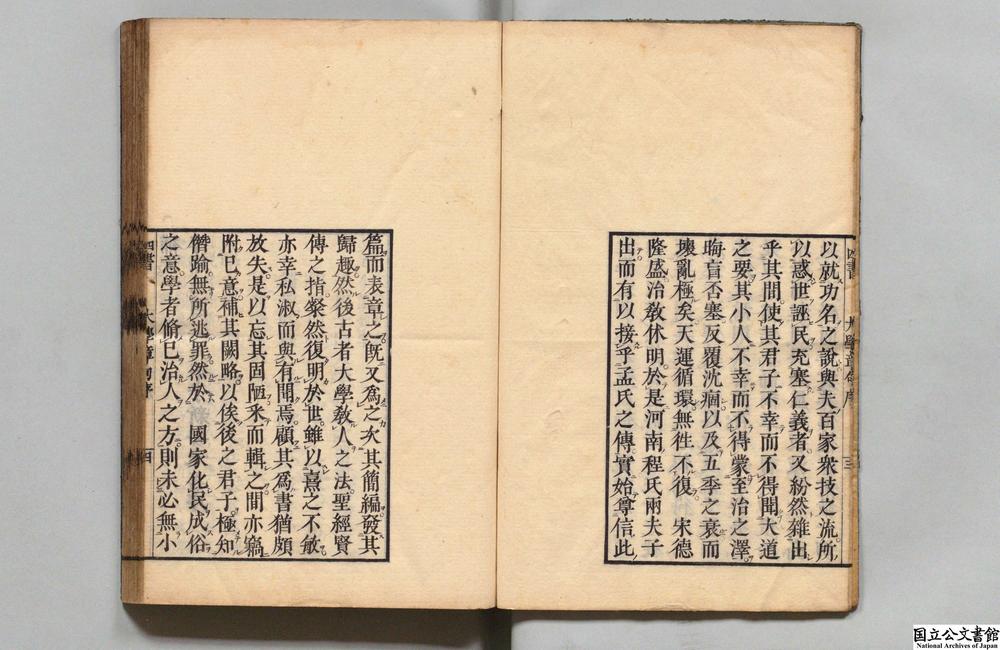 以就功名之說與夫百家衆技之流所
以惑世誣民充塞仁義者又紛然雜出
乎其間使其君子不幸而不得聞大道
之要其小人不幸而不得蒙至治之澤
晦盲否塞反覆沈痼以及五季之衰而
壞亂極矣天運循環無徃不復 宋德
隆盛治敎休明於是河南程氏兩夫子
出而有以接乎孟氏之傳實始尊信此
篇而表章之旣又爲之次其簡編發其
歸趣然後古者大學敎人之法聖經賢
傳之指粲然復明於世雖以熹之不敏
亦幸私淑而與有聞焉顧其爲書猶頗
放失是以忘其固陋釆而輯之間亦竊
附己意補其闕略以俟後之君子極知
僭踰無所逃罪然於 國家化民成俗
之意學者脩己治人之方則未必無小
四書 大學章句序 四
国立公文書館
National Archives of Japan